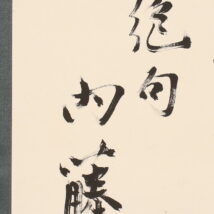 絶句
内藤